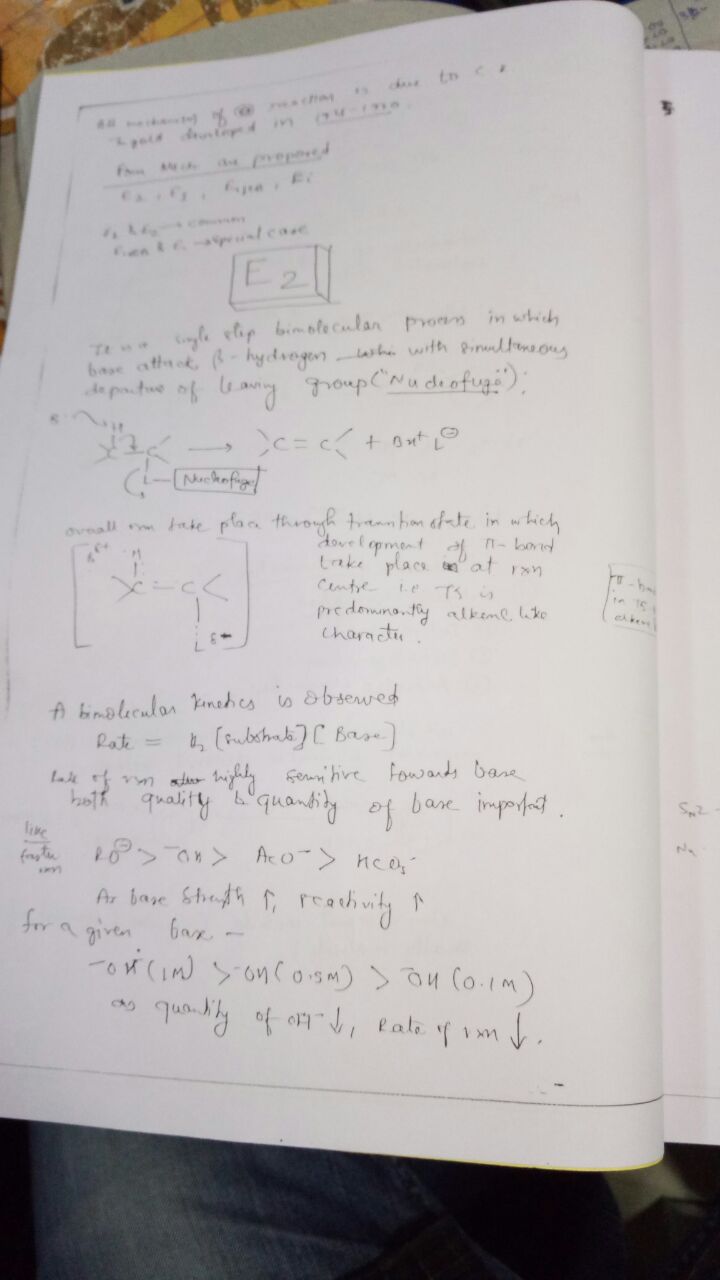 All mechanisms of reaction is due to C.K
Ingold developed in
Four Mech are proposed
E2, E1, E1cB, Ei
E1 & E2 → common
E1cB & Ei → special case
E2
It is a single step bimolecular process in which
base attack β-hydrogen with simultaneous
departure of leaving group ("Nucleofuge"):
B: H
C = C + BH+ L⊖
L — Nucleofuge
overall rxn take place through transition state in which
development of π-bond
take place at rxn
centre i.e TS is
predominantly alkene like
character.
Bδ+ H
C = C
L δ-
π-bond
in TS
alkene
A bimolecular kinetics is observed
Rate = k2 [substrate] [Base]
Rate of rxn highly sensitive towards base
both quality & quantity of base important.
like
faster
rxn
RO⊖ > -OH > AcO- > HCO3-
As base strength ↑, reactivity ↑
for a given base -
-OH (1M) > -OH (0.5M) > -OH (0.1M)
as quantity of OH- ↓, Rate of rxn ↓.
SN2 -